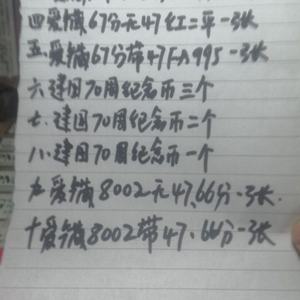 四爱藏67分无47红二平一张
五.爱藏67分带47FA995一张
六.建国70周纪念币三个
七.建国70周纪念币二个
八.建国70周纪念币一个
九.爱藏8002无47.66分一张.
十爱藏8002带47.66分一张